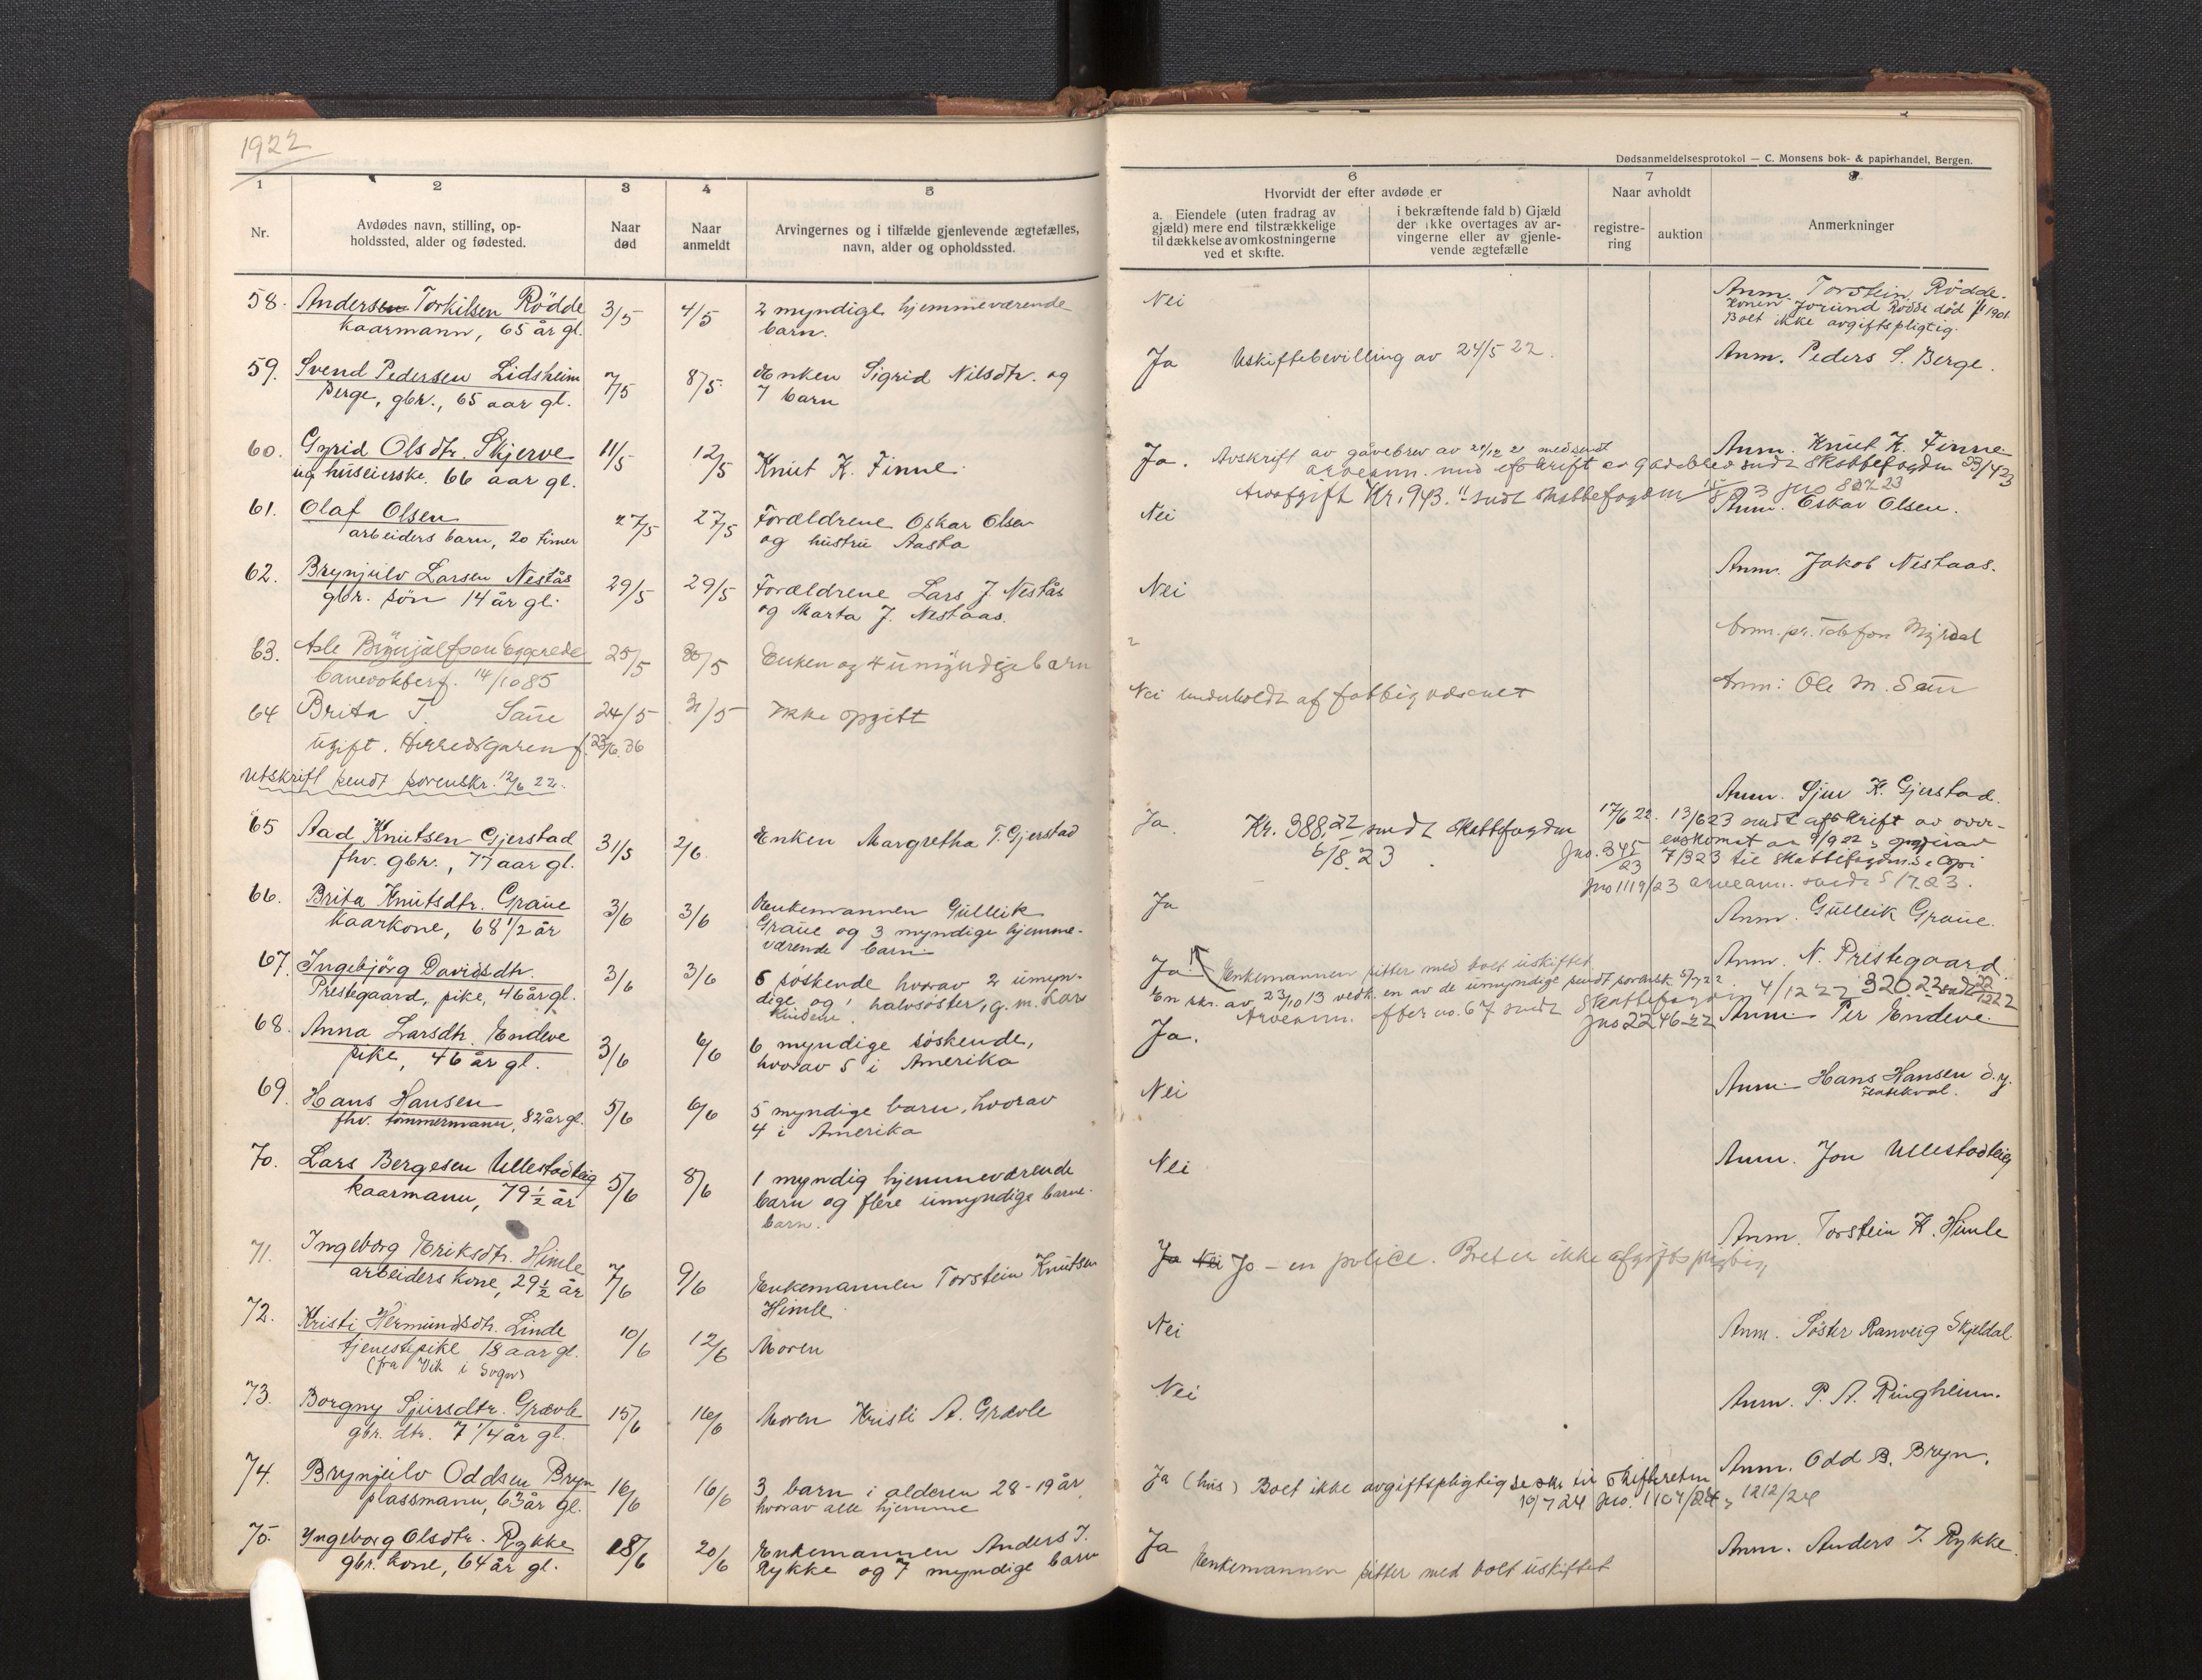 1922
Dødsanmeldelsesprotokol — C. Monsens bok- & papirhandel, Bergen.
1
2
3
4
5
6
7
8
Nr.
Avdødes navn, stilling, op-
holdssted, alder og fødested.
Naar
død
Naar
anmeldt
Arvingernes og i tilfælde gjenlevende ægtefælles,
navn, alder og opholdssted.
Hvorvidt der efter avdøde er
a. Eiendele (uten fradrag av
gjæld) mere end tilstrækkelige
til dækkelse av omkostningerne
ved et skifte.
i bekræftende fald b) Gjæld
der ikke overtages av ar-
vingerne eller av gjenle-
vende ægtefælle
Naar avholdt
registre-
ring
auktion
Anmerkninger
58. Anders Torkilsen Rödde 3/5 4/5 2 myndige hjemmeværende Nei Anm. Torstein Rödde.
kaarmann, 65 år gl. barn. Konen Jorund Rödde död 1901.
Boet ikke avgiftspligtig.
59. Svend Pedersen Lidsheim 7/5 8/5 Enken Sigrid Nilsdtr. og Ja Uskiftebevilling av 24/5 22. Anm. Peders S. Berge.
Berge, gbr., 65 aar gl. 7 barn
60. Gyrid Olsdtr. Skjerve 11/5 12/5 Knut K. Finne. Ja. Avskrift av gåvebrev av 21/12 21 medsendt Anm. Knut K. Finne
ug. huseierske. 66 aar gl. arveanm. med afskrift av gavebrev sendt skattefogden 23/4 23
Arvafgift Kr. 943. sendt skattefogden
61. Olaf Olsen 27/5 27/5 Forældrene Oskar Olsen Nei Anm. Oskar Olsen.
arbeiders barn, 20 timer og hustru Aasta
62. Brynjulv Larsen Nestås 29/5 29/5 Forældrene Lars J. Nestås Nei Anm. Jakob Nestaas.
gbr. søn 14 år gl. og Marta J. Nestaas.
63. Asle Brynjulfson 25/5 30/5 Enken og 4 umyndige barn Anm. pr. Telefon Myrdal
banevokter f. 14/10 85
64 Brita T. Saue 24/5 31/5 Ikke opgitt Nei underholdt af fattigvæsenet Anm: Ole M. Saue
ugift. Herredsgaren f. 23/6. 36
Utskrift sendt sorenskr. 12/6 22.
65 Aad Knutsen Gjerstad 31/5 2/6 Enken Margretha T. Gjerstad Ja. Kr. 388,22 sendt skattefogden Anm. Sjur K. Gjerstad.
fhv. gbr., 77 aar gl. 6/8. 23 17/6 22. 13/6 23 sendt afskrift av over-
Jno. 345/23 7/3 23 til skattefogden
Jno 1119/23 arveanm. sendt
66. Brita Knutsdtr. Graue 3/6 3/6 Enkemannen Gulleik Ja Anm. Gulleik Graue.
kaarkone, 68 1/2 år Graue og 3 myndige hjemme-
værende barn
67. Ingebjörg Davidsdtr. 3/6 3/6 6 søskende hvorav 2 umyn- Ja Enkemannen sitter med boet uskiftet Anm. N. Prestegaard.
Prestegaard, pike, 46 år gl. dige og 1 halvsöster, g. m. Lars En skr. av 23/10 13 vedk. en av de umyndige sendt sorenskr. 5/7 22
Kindem. Arveanm. efter no. 67 sendt skattefogden 4/12 22 320.22 sendt 22/12 22
Jno 2246-22
68. Anna Larsdtr. Endeve 3/6 6/6 6 myndige söskende, Ja. Anm. Per Endeve.
pike, 46 år gl. hvorav 5 i Amerika
69. Hans Hansen 5/6 6/6 5 myndige barn, hvorav Nei Anm. Hans Hansen d.y.
fhv. tømmermann, 82 år gl. 4 i Amerika
70. Lars Bergesen Ullestadteig 5/6 8/6 1 myndig hjemmeværende Nei Anm. Jon Ullestadteig
kaarmann, 79 1/2 år barn og flere umyndige barne-
barn.
71. Ingeborg Eriksdtr. Himle 7/6 9/6 Enkemannen Torstein Knutsen Ja Nei Jo - en police. Boet er ikke afgiftspligtig Anm. Torstein K. Himle
arbeiders kone, 29 1/2 år Himle.
72. Kristi Hermundsdtr. Linde 10/6 12/6 Moren Nei Anm. Söster Ranveig Skjeldal
tjenestepike 18 aar gl.
(fra Vik i Sogn)
73. Borgny Sjursdtr. Grævle 15/6 16/6 Moren Kristi A. Grævle Nei Anm. P. A. Ringheim.
gbr. dtr. 7 1/4 år gl.
74. Brynjulv Oddsen Bryn 16/6 16/6 3 barn i alderen 28-19 år Ja (hus) Boet ikke avgiftspligtig se skr. til skifteretten Anm. Odd B. Bryn.
plassmann, 63 år gl. hvorav alle hjemme 19/7 24 Jno. 1107/24, 1212/24
75. Ingeborg Olsdtr. Rykke 18/6 20/6 Enkemannen Anders I. Ja Anm. Anders I. Rykke.
gbr. kone, 64 år gl. Rykke og 7 myndige barn Enkemannen sitter med boet uskiftet